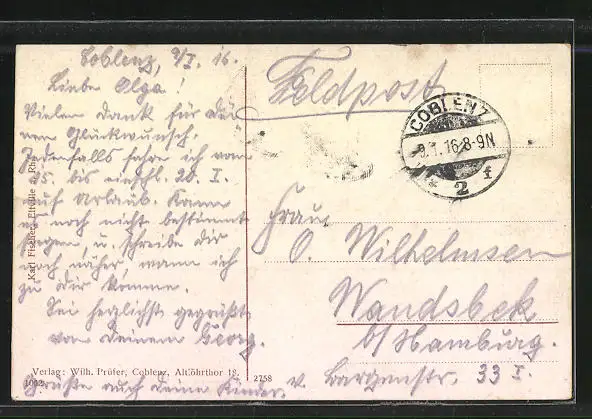 Coblenz, 9/I. 16.
Liebe Olga!
Vielen Dank für Dei-
nen Glückwunsch.
Jedenfalls fahre ich vom
15. bis einschl. 20. I.
auf Urlaub. Kann
es noch nicht bestimmt
sagen, u. schreibe Dir
noch näher, wann ich
zu Dir komme.
Sei herzlichst gegrüßt
von Deinem Georg.
Grüße auch Deine Kinder.
Karl Fischer, Eltville a. Rh.
Verlag: Wilh. Prüfer, Coblenz, Altlöhrthor 18.
2758
Feldpost
COBLENZ
9.1.16 8-9N
* 2 f
Frau
O. Wilhelmsen
Wandsbek
b/Hamburg.
v. Bargenstr. 33 I.